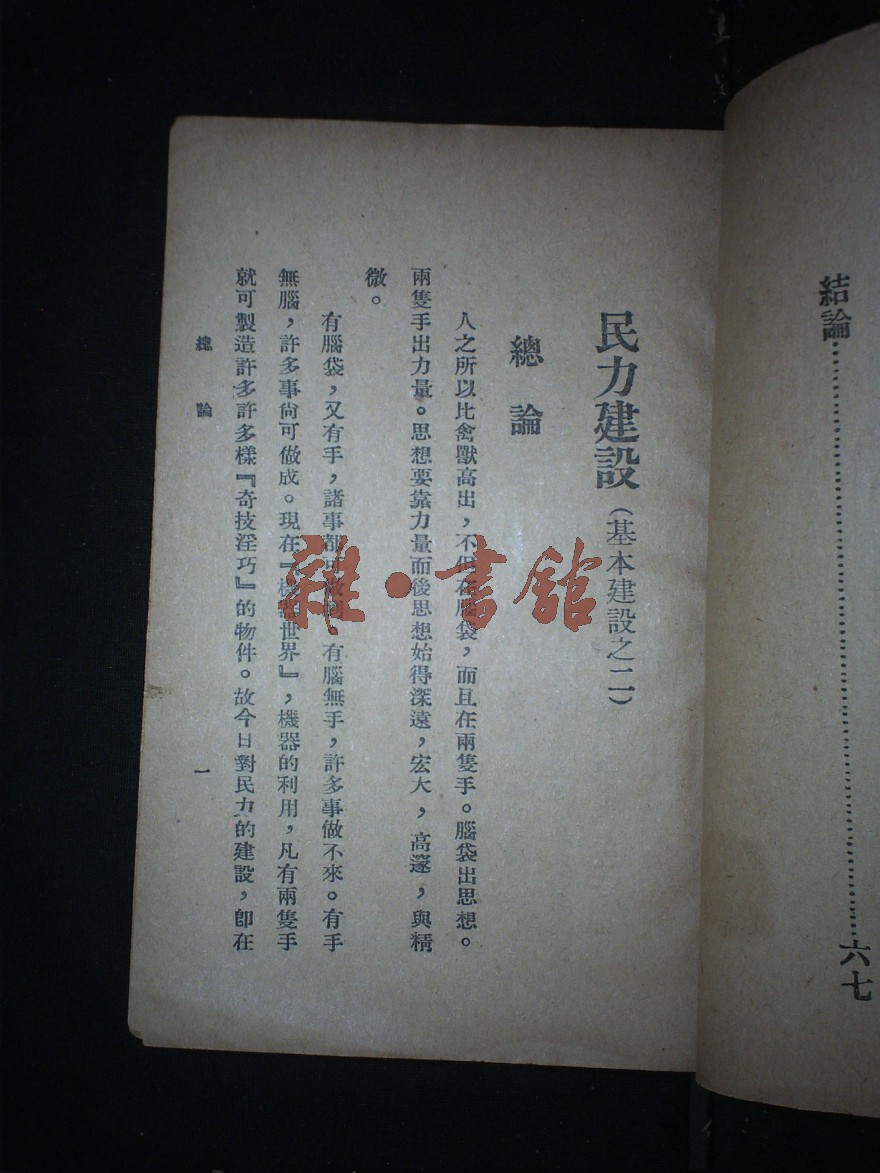 結論……………………六七
民力建設(基本建設之二)
總論
人之所以比禽獸高出,不但在腦袋,而且在兩隻手。腦袋出思想。
兩隻手出力量。思想要靠力量而後思想始得深遠,宏大,高邃,與精
微。
有腦袋,又有手,諸事都可做到。有腦無手,許多事做不來。有手
無腦,許多事尙可做成。現在『機器世界』,機器的利用,凡有兩隻手
就可製造許多許多樣『奇技淫巧』的物件。故今日對民力的建設,卽在
總論
一
雜·書館